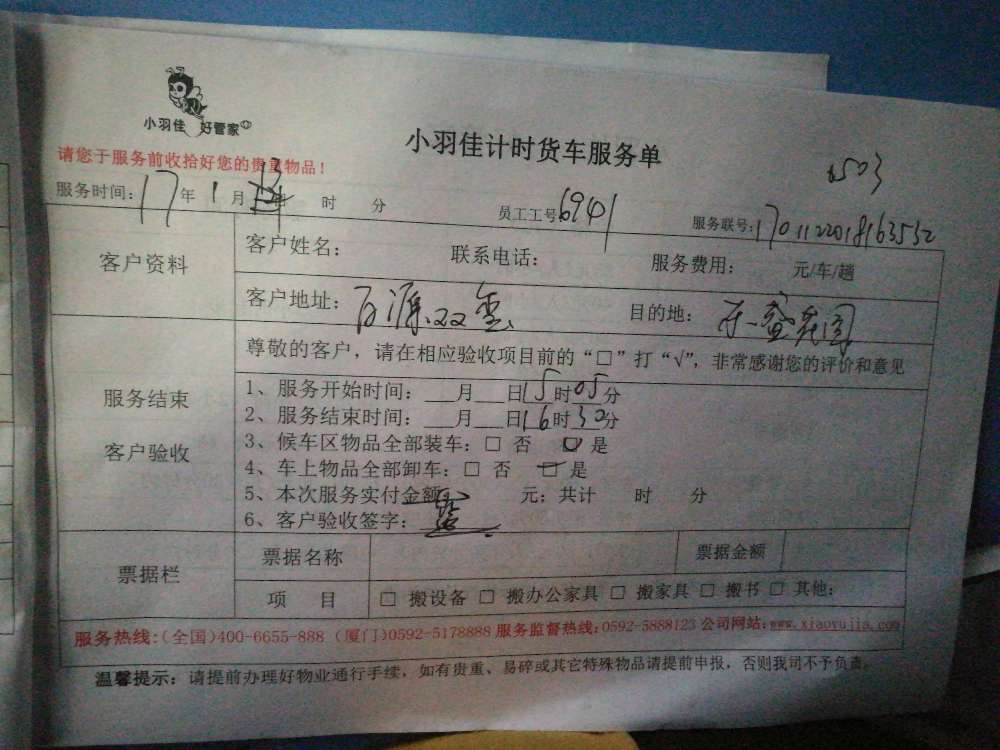 小羽佳 好管家
小羽佳计时货车服务单
请您于服务前收拾好您的贵重物品！
服务时间：17年 1月 时 分 员工工号6941 服务联号：1701122018163532
客户资料
客户姓名： 联系电话： 服务费用： 元/车/趟
客户地址：百源双玺 目的地：花园
尊敬的客户，请在相应验收项目前的“□”打“√”，非常感谢您的评价和意见
服务结束
客户验收
1、服务开始时间：___月___日15时05分
2、服务结束时间：___月___日16时30分
3、候车区物品全部装车：□ 否 □ 是
4、车上物品全部卸车：□ 否 □ 是
5、本次服务实付金额 元；共计 时 分
6、客户验收签字：
票据栏
票据名称 票据金额
项 目 □ 搬设备 □ 搬办公家具 □ 搬家具 □ 搬书 □ 其他：
服务热线：(全国)400-6655-888 (厦门)0592-5178888 服务监督热线：0592-5888123 公司网站：www.xiaoyujia.com
温馨提示：请提前办理好物业通行手续，如有贵重、易碎或其它特殊物品请提前申报，否则我司不予负责。